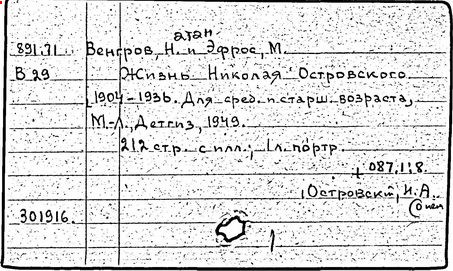 атан
891.71 Венгров, Н. и Эфрос, М.
В 29 Жизнь Николая Островского
1904-1936. Для сред. и старш. возраста,
М.-Л., Детгиз, 1949.
212 стр. с илл.; 1 л. портр.
+ 087.1:8.
Островский, Н. А.
(О нем
301916.
1